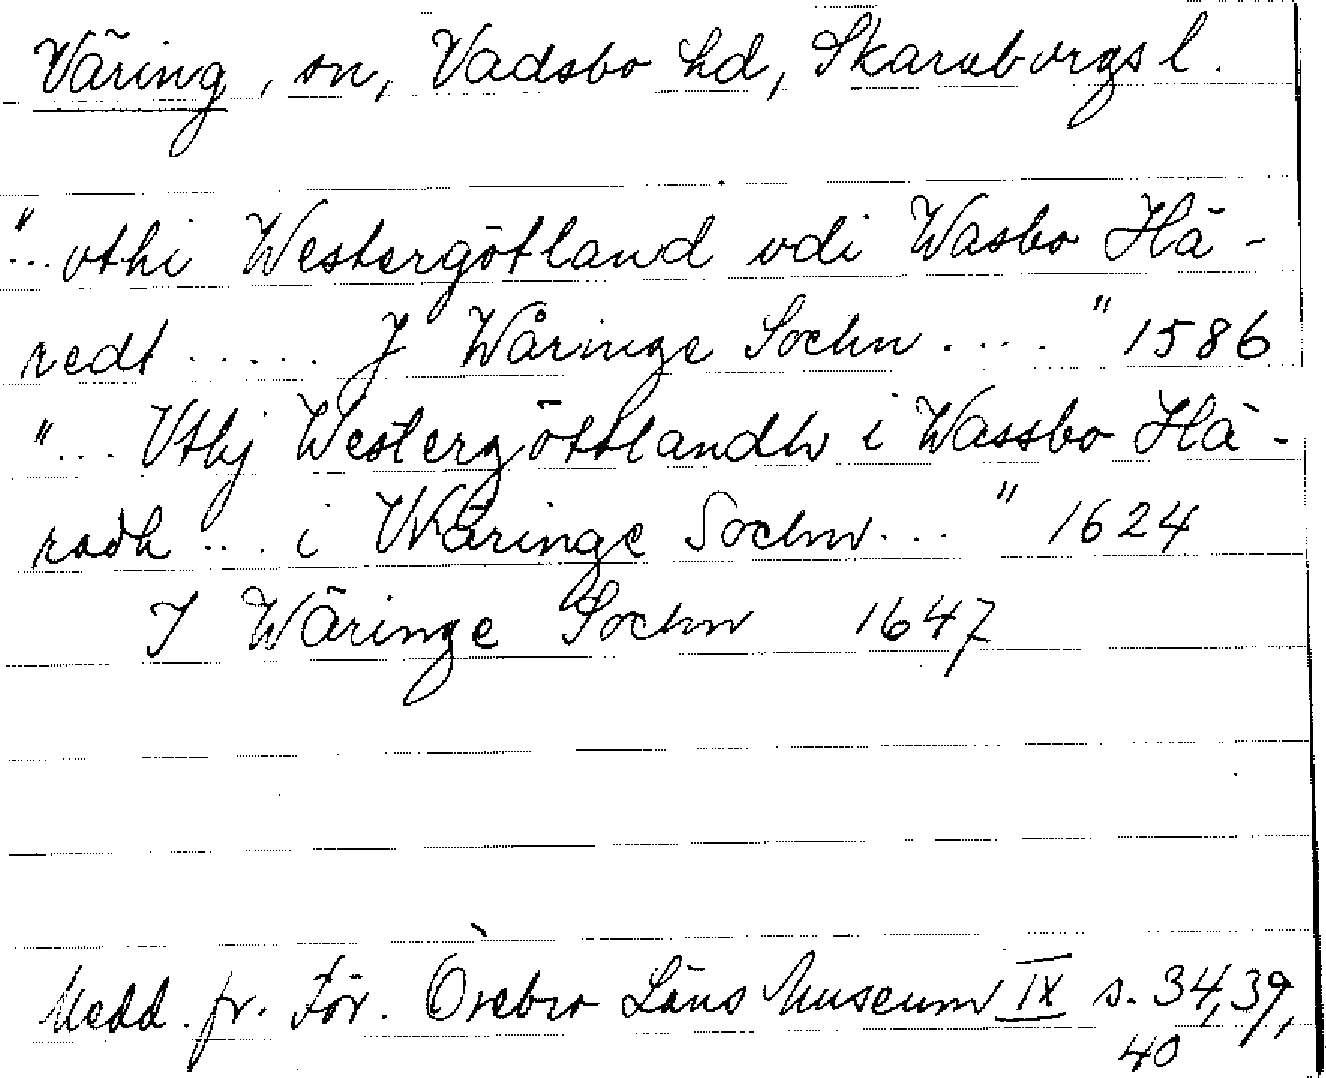 Väring, sn, Vadsbo hd, Skaraborgs l.
"... vthi Westergötland vdi Wasbo Hä-
redt ..... J Wåringe Sochn ...." 1586
"... Vthj Westergöttlandh i Wassbo Hä-
radh ... i Wäringe Sochn ..." 1624
I Wäringe Sochn 1647
Medd. fr. För. Örebro Läns Museum IX s. 34, 39,
40